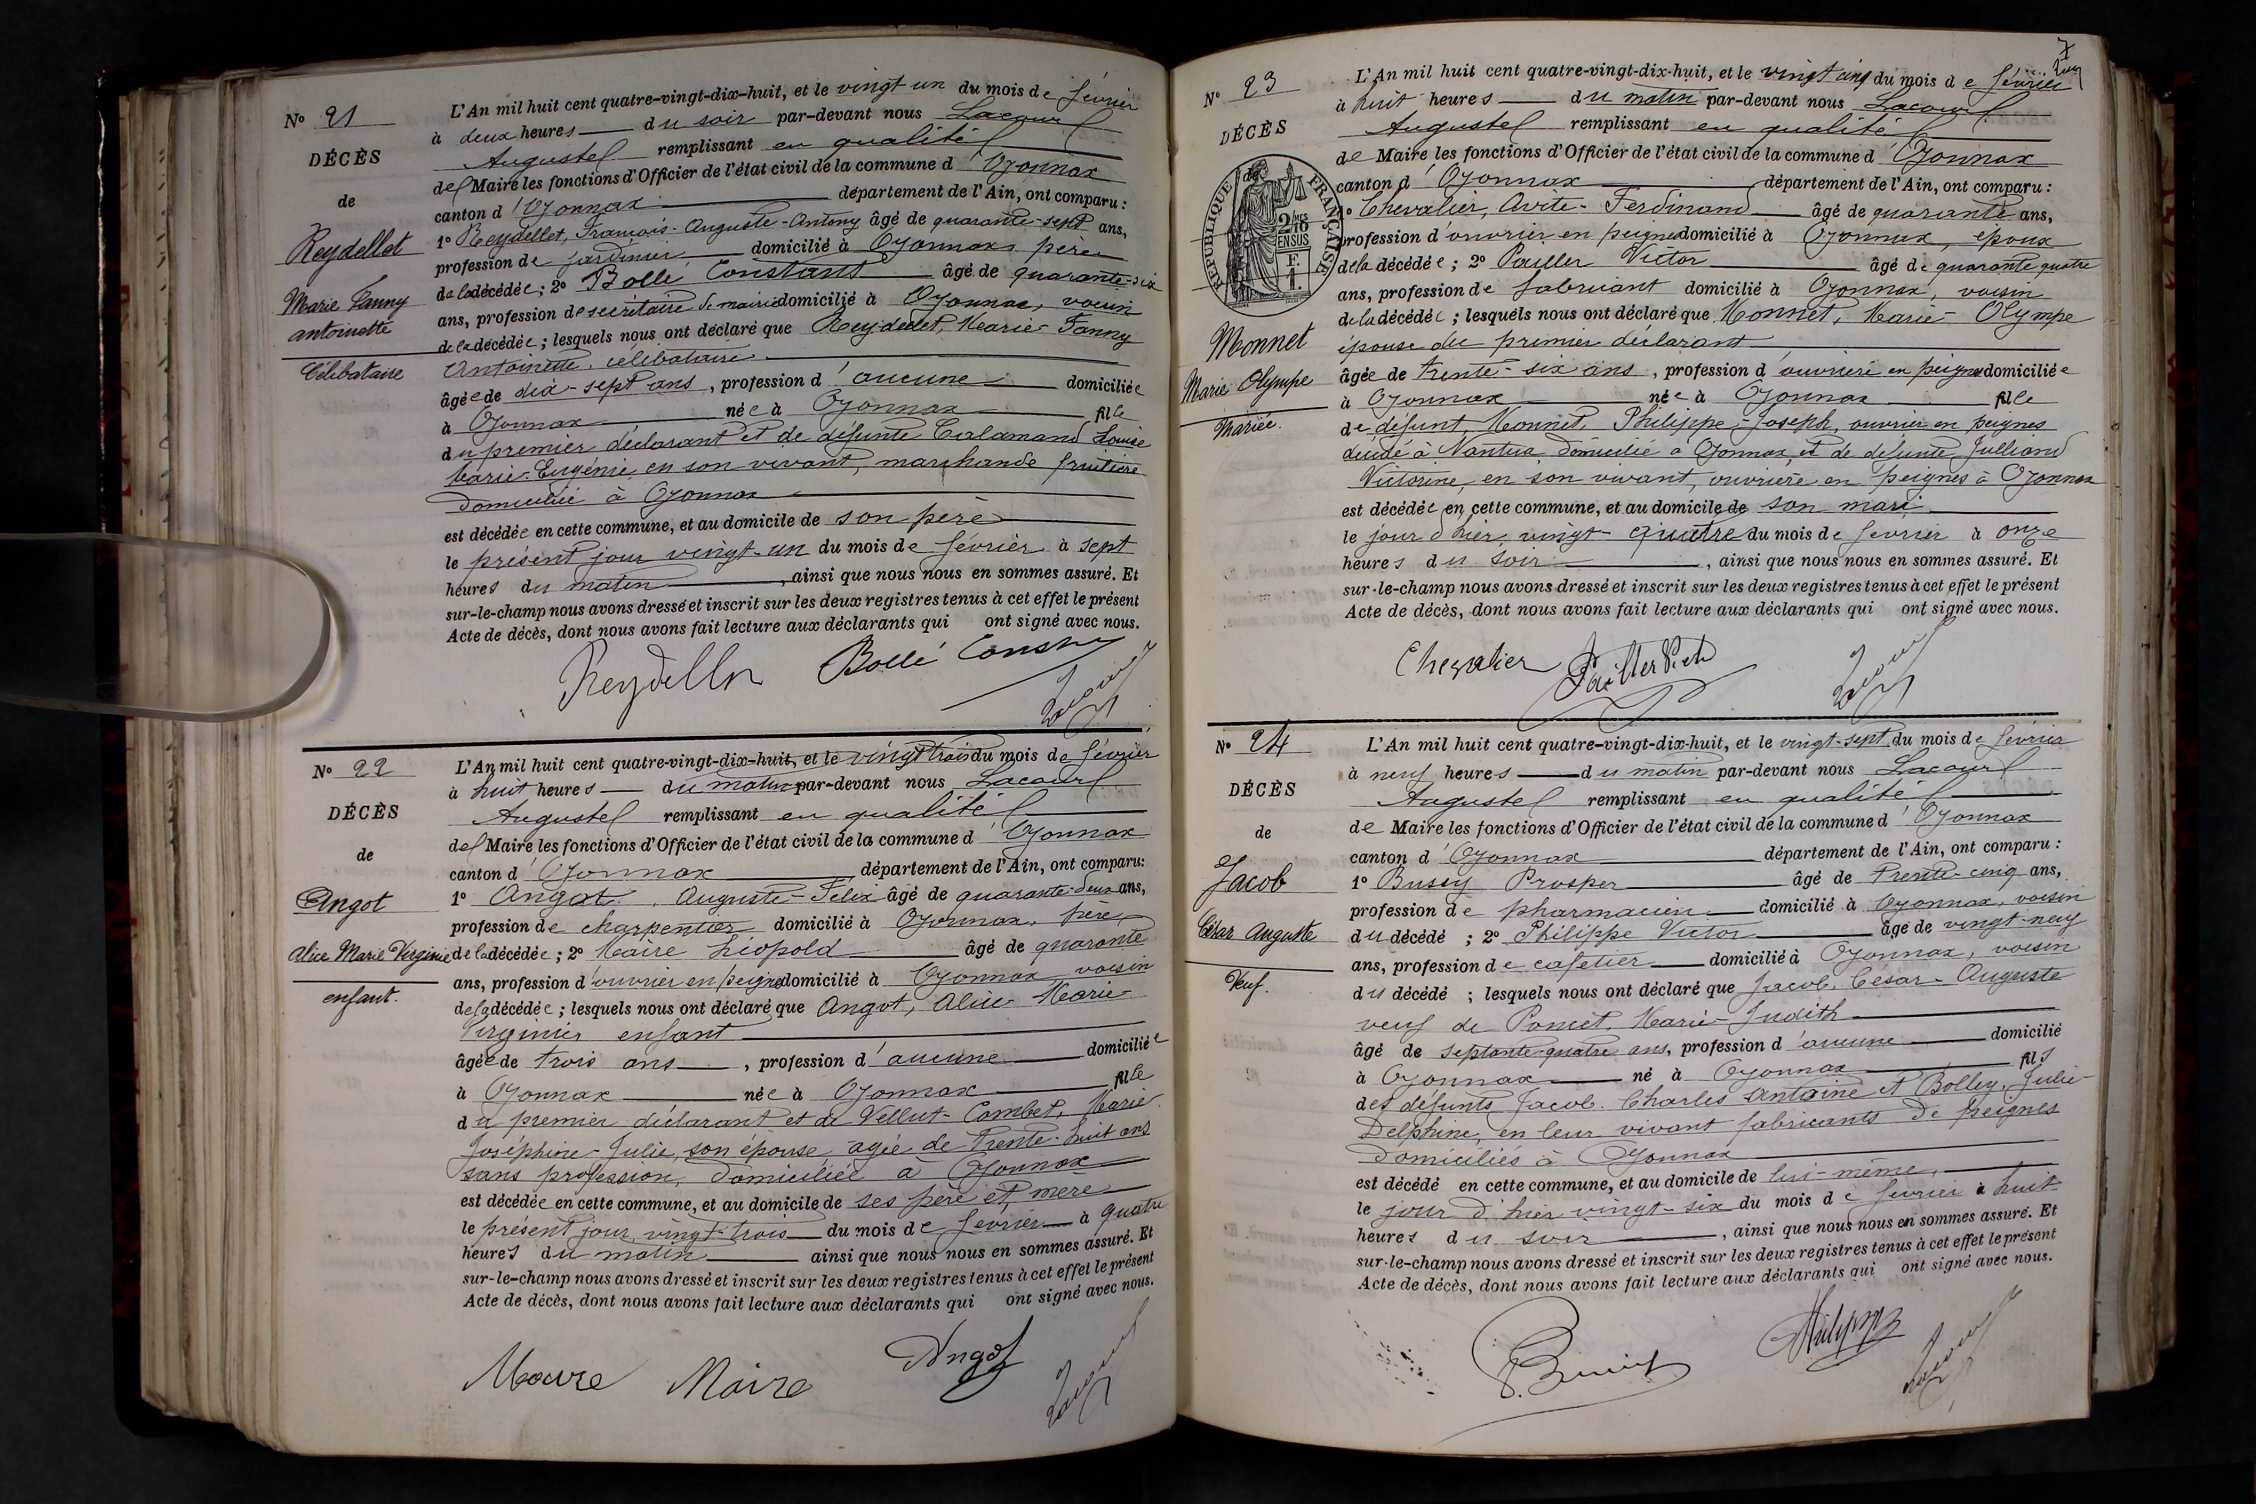 No 21
DÉCÈS
de
Reydellet
Marie Fanny
antoinette
Célibataire
L'An mil huit cent quatre-vingt-dix-huit, et le vingt un du mois de février
à deux heures du soir par-devant nous Lacour
Auguste remplissant en qualité
de Maire les fonctions d'Officier de l'état civil de la commune d'Oyonnax
canton d'Oyonnax département de l'Ain, ont comparu :
1° Reydellet, François-Auguste-Antony âgé de quarante-sept ans,
profession de jardinier domicilié à Oyonnax, père
de la décédée ; 2° Bollé Constant âgé de quarante-six
ans, profession de secrétaire de mairie domicilié à Oyonnax, voisin
de la décédée ; lesquels nous ont déclaré que Reydellet, Marie-Fanny
Antoinette, célibataire
âgée de dix-sept ans, profession d'aucune domiciliée
à Oyonnax née à Oyonnax fille
du premier déclarant et de défunte Calamand Louise
Marie-Eugénie, en son vivant, marchande fruitière
domiciliée à Oyonnax
est décédée en cette commune, et au domicile de son père
le présent jour vingt-un du mois de février à sept
heures du matin, ainsi que nous nous en sommes assuré. Et
sur-le-champ nous avons dressé et inscrit sur les deux registres tenus à cet effet le présent
Acte de décès, dont nous avons fait lecture aux déclarants qui ont signé avec nous.
Bollé
Lacour
No 22
DÉCÈS
de
Angot
Alice Marie Virginie
enfant.
L'An mil huit cent quatre-vingt-dix-huit, et le vingt trois du mois de février
à huit heures du matin par-devant nous Lacour
Auguste remplissant en qualité
de Maire les fonctions d'Officier de l'état civil de la commune d'Oyonnax
canton d'Oyonnax département de l'Ain, ont comparu :
1° Angot, Auguste-Félix âgé de quarante-deux ans,
profession de charpentier domicilié à Oyonnax, père
de la décédée ; 2° Maire Léopold âgé de quarante
ans, profession d'ouvrier en peignes domicilié à Oyonnax voisin
de la décédée ; lesquels nous ont déclaré que Angot, Alice Marie
Virginie, enfant
âgée de trois ans, profession d'aucune domiciliée
à Oyonnax née à Oyonnax fille
du premier déclarant et de Vellut-Combet, Marie
Joséphine-Julie, son épouse, agée de trente-huit ans
sans profession, domiciliée à Oyonnax
est décédée en cette commune, et au domicile de ses père et mere
le présent jour, vingt-trois du mois de fevrier à quatre
heures du matin ainsi que nous nous en sommes assuré. Et
sur-le-champ nous avons dressé et inscrit sur les deux registres tenus à cet effet le présent
Acte de décès, dont nous avons fait lecture aux déclarants qui ont signé avec nous.
Maire Angot
Lacour
7
No 23
DÉCÈS
de
RÉPUBLIQUE FRANÇAISE
2/10 MES
EN SUS
F.
1.
Monnet
Marie Olympe
Mariée.
L'An mil huit cent quatre-vingt-dix-huit, et le vingt cinq du mois de février
à huit heures du matin par-devant nous Lacour
Auguste remplissant en qualité
de Maire les fonctions d'Officier de l'état civil de la commune d'Oyonnax
canton d'Oyonnax département de l'Ain, ont comparu :
1° Chevalier, Avite-Ferdinand âgé de quarante ans,
profession d'ouvrier en peignes domicilié à Oyonnax, epoux
de la décédée ; 2° Pailler Victor âgé de quarante quatre
ans, profession de fabricant domicilié à Oyonnax, voisin
de la décédée ; lesquels nous ont déclaré que Monnet, Marie-Olympe
épouse du premier déclarant
âgée de trente-six ans, profession d'ouvrière en peignes domiciliée
à Oyonnax née à Oyonnax fille
de défunt, Monnet, Philippe-Joseph, ouvrier en peignes
décédé à Nantua domicilié a Oyonnax, et de défunte, Julliand
Victorine, en son vivant, ouvrière en peignes à Oyonnax
est décédée en cette commune, et au domicile de son mari
le jour d'hier, vingt-quatre du mois de fevrier à onze
heures du soir, ainsi que nous nous en sommes assuré. Et
sur-le-champ nous avons dressé et inscrit sur les deux registres tenus à cet effet le présent
Acte de décès, dont nous avons fait lecture aux déclarants qui ont signé avec nous.
Chevalier Pailler
Lacour
No 24
DÉCÈS
de
Jacob
César Auguste
Veuf.
L'An mil huit cent quatre-vingt-dix-huit, et le vingt-sept du mois de février
à neuf heures du matin par-devant nous Lacour
Auguste remplissant en qualité
de Maire les fonctions d'Officier de l'état civil de la commune d'Oyonnax
canton d'Oyonnax département de l'Ain, ont comparu :
1° Bussy Prosper âgé de trente-cinq ans,
profession de pharmacien domicilié à Oyonnax, voisin
du décédé ; 2° Philippe Victor âgé de vingt-neuf
ans, profession de cafetier domicilié à Oyonnax, voisin
du décédé ; lesquels nous ont déclaré que Jacob, César-Auguste
veuf de Poncet, Marie-Judith
âgé de septante-quatre ans, profession d'aucune domicilié
à Oyonnax né à Oyonnax fils
des défunts Jacob, Charles Antoine et Bolley, Julie-
Delphine, en leur vivant fabricants de peignes
domiciliés à Oyonnax
est décédé en cette commune, et au domicile de lui-même,
le jour d'hier vingt-six du mois de fevrier à huit
heures du soir, ainsi que nous nous en sommes assuré. Et
sur-le-champ nous avons dressé et inscrit sur les deux registres tenus à cet effet le présent
Acte de décès, dont nous avons fait lecture aux déclarants qui ont signé avec nous.
Lacour